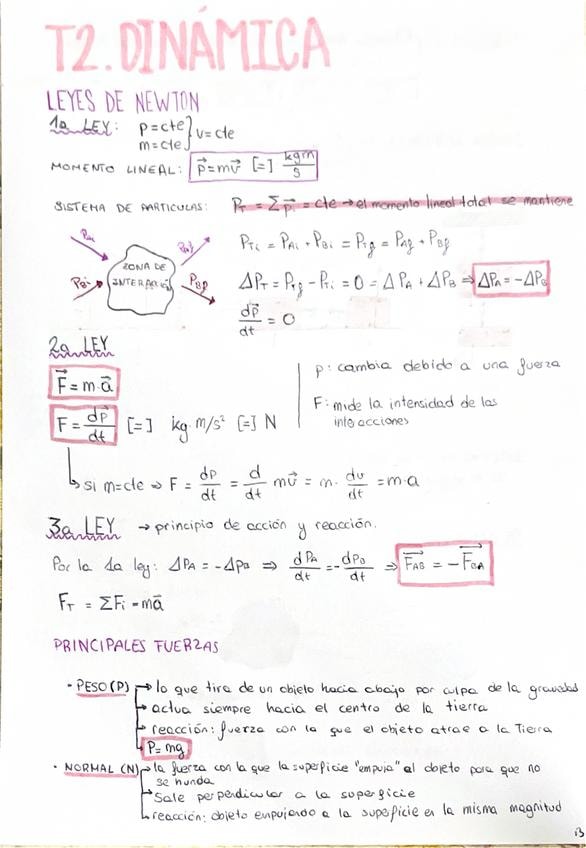 T2. DINÁMICA
LEYES DE NEWTON
1a LEY: p=cte } v=cte
m=cte
MOMENTO LINEAL: p⃗=mv⃗ [=] kgm/s
SISTEMA DE PARTICULAS: P_T = Σp⃗i = cte → el momento lineal total se mantiene
P_Ai P_Af
ZONA DE
INTERACCIÓN
P_Bi P_Bf
P_Ti = P_Ai + P_Bi = P_Tf = P_Af + P_Bf
ΔP_T = P_Tf - P_Ti = 0 = ΔP_A + ΔP_B ⇒ ΔP_A = -ΔP_B
dp⃗/dt = 0
2a LEY
F⃗ = m·a⃗
F = dp⃗/dt [=] kg·m/s² [=] N
p: cambia debido a una fuerza
F: mide la intensidad de las
interacciones
si m=cte ⇒ F = dp/dt = d/dt mv⃗ = m· dv/dt = m·a
3a LEY → principio de acción y reacción.
Por la 1a ley: ΔP_A = -ΔP_B ⇒ dP_A/dt = -dP_B/dt ⇒ F⃗_AB = -F⃗_BA
F_T = ΣFi = ma⃗
PRINCIPALES FUERZAS
· PESO (P) → lo que tira de un objeto hacia abajo por culpa de la gravedad
→ actua siempre hacia el centro de la tierra
→ reacción: fuerza con la que el objeto atrae a la Tierra
P=mg
· NORMAL (N) → la fuerza con la que la superficie "empuja" al objeto para que no
se hunda
→ Sale perpendicular a la superficie
→ reacción: objeto empujando a la superficie en la misma magnitud